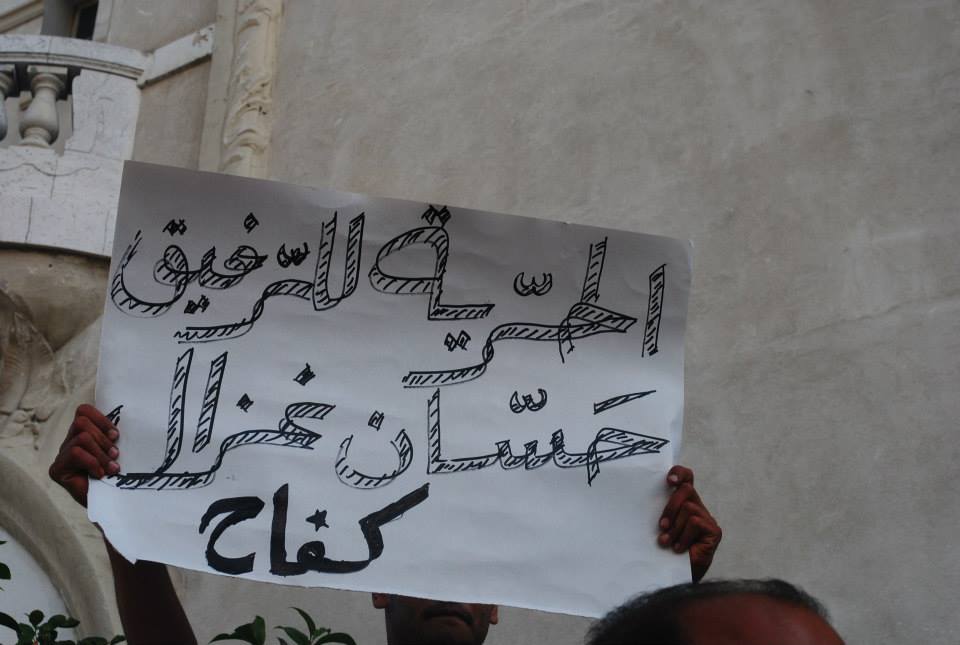 الحريّة للرّفيق
حَسّان غزال
كفاح